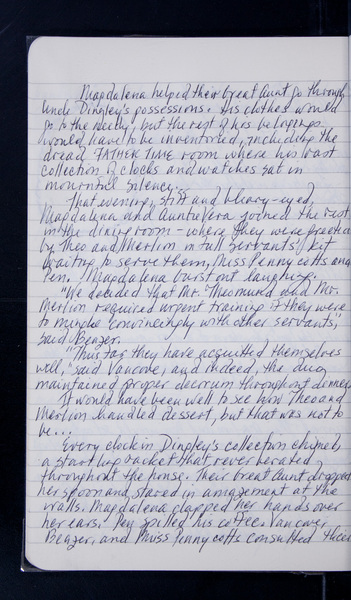 Magdalena helped their Great Aunt go through
Uncle Dingley's possessions. His clothes would
go to the needy, but the rest of his belongings
would have to be inventoried, including the
dread FATHER TIME room where his vast
collection of clocks and watches sat in
mournful silence.
That evening, stiff and bleary-eyed,
Magdalena and Aunt Vera joined the rest
in the dining room - where they were
by Theo and Merlion in full servants' kit
waiting to serve them, Miss Pennycotts and
Pen. Magdalena burst out laughing.
"We decided that Mr. Theo and Mr.
Merlion required urgent training if they were
to mingle convincingly with other servants,"
said Benzer.
"Thus far they have acquitted themselves
well," said Vancouver, and indeed, the duo
maintained proper decorum throughout dinner.
It would have been well to see how Theo and
Merlion handled dessert, but that was not to
be...
Every clock in Dingley's collection chimed,
a startling racket that reverberated
throughout the house. Their Great Aunt dropped
her spoon and stared in amazement at the
walls. Magdalena clapped her hands over
her ears. Pen spilled his coffee.
Benzer, and Miss Pennycotts consulted their